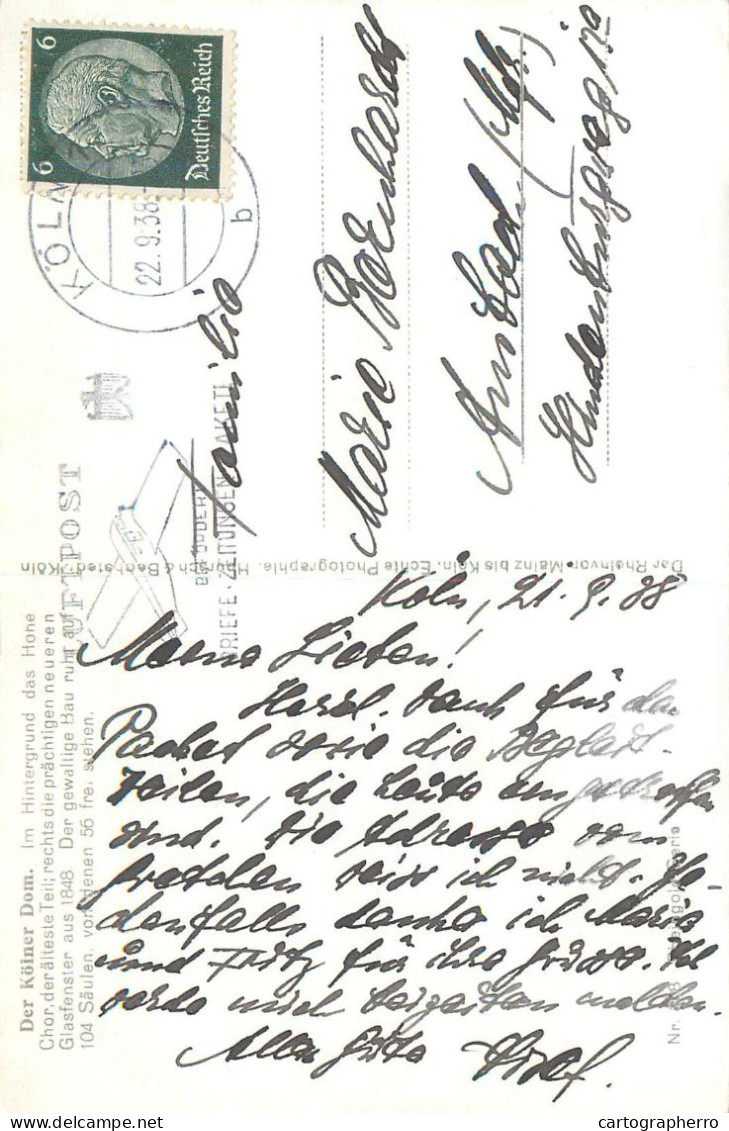 6 6
Deutsches Reich
KÖLN
22.9.38
b
LUFTPOST
BEFÖDERT
BRIEFE·ZEITUNGEN·PAKETE
Familie
Marie Bernhardt
Ansbach (Mfr.)
Hindenburgweg 17a
Der Rhein von Mainz bis Köln. Echte Photographie. Hoursch & Bechstedt, Köln
Der Kölner Dom. Im Hintergrund das Hohe
Chor, der älteste Teil; rechts die prächtigen neueren
Glasfenster aus 1848. Der gewaltige Bau ruht auf
104 Säulen, von denen 56 frei stehen.
Köln, 21.9.38
Meine Lieben!
Herzl. Dank für das
Packet sowie die Begleit-
zeilen, die heute eingetroffen
sind. Die Adresse vom
weiss ich nicht. Je-
denfalls danke ich Marie
und Fritz für ihre Grüsse. Ich
werde mich beizeiten melden.
Alles Gute
Nr. Rheingold-Serie
cartographerro